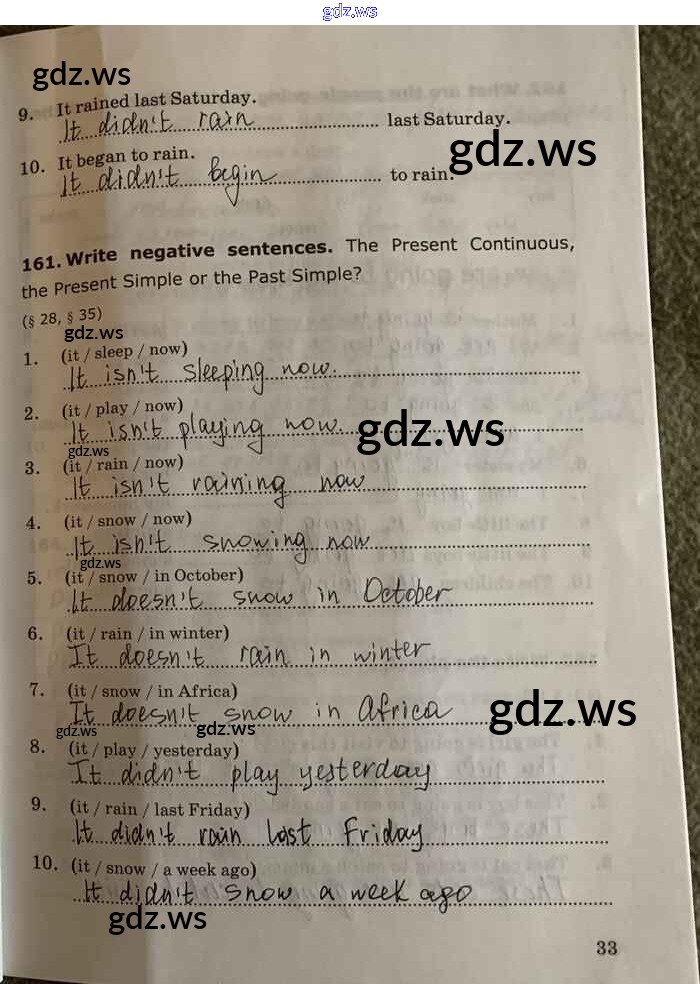 gdz.ws
gdz.ws
9. It rained last Saturday.
It didn't rain last Saturday.
gdz.ws
10. It began to rain.
It didn't begin to rain.
161. Write negative sentences. The Present Continuous,
the Present Simple or the Past Simple?
(§ 28, § 35)
gdz.ws
1. (it / sleep / now)
It isn't sleeping now.
2. (it / play / now)
It isn't playing now.
gdz.ws
gdz.ws
3. (it / rain / now)
It isn't raining now
4. (it / snow / now)
It isn't snowing now
gdz.ws
5. (it / snow / in October)
It doesn't snow in October
6. (it / rain / in winter)
It doesn't rain in winter
7. (it / snow / in Africa)
It doesn't snow in Africa
gdz.ws
gdz.ws
gdz.ws
8. (it / play / yesterday)
It didn't play yesterday
9. (it / rain / last Friday)
It didn't rain last Friday
10. (it / snow / a week ago)
It didn't snow a week ago
gdz.ws
33